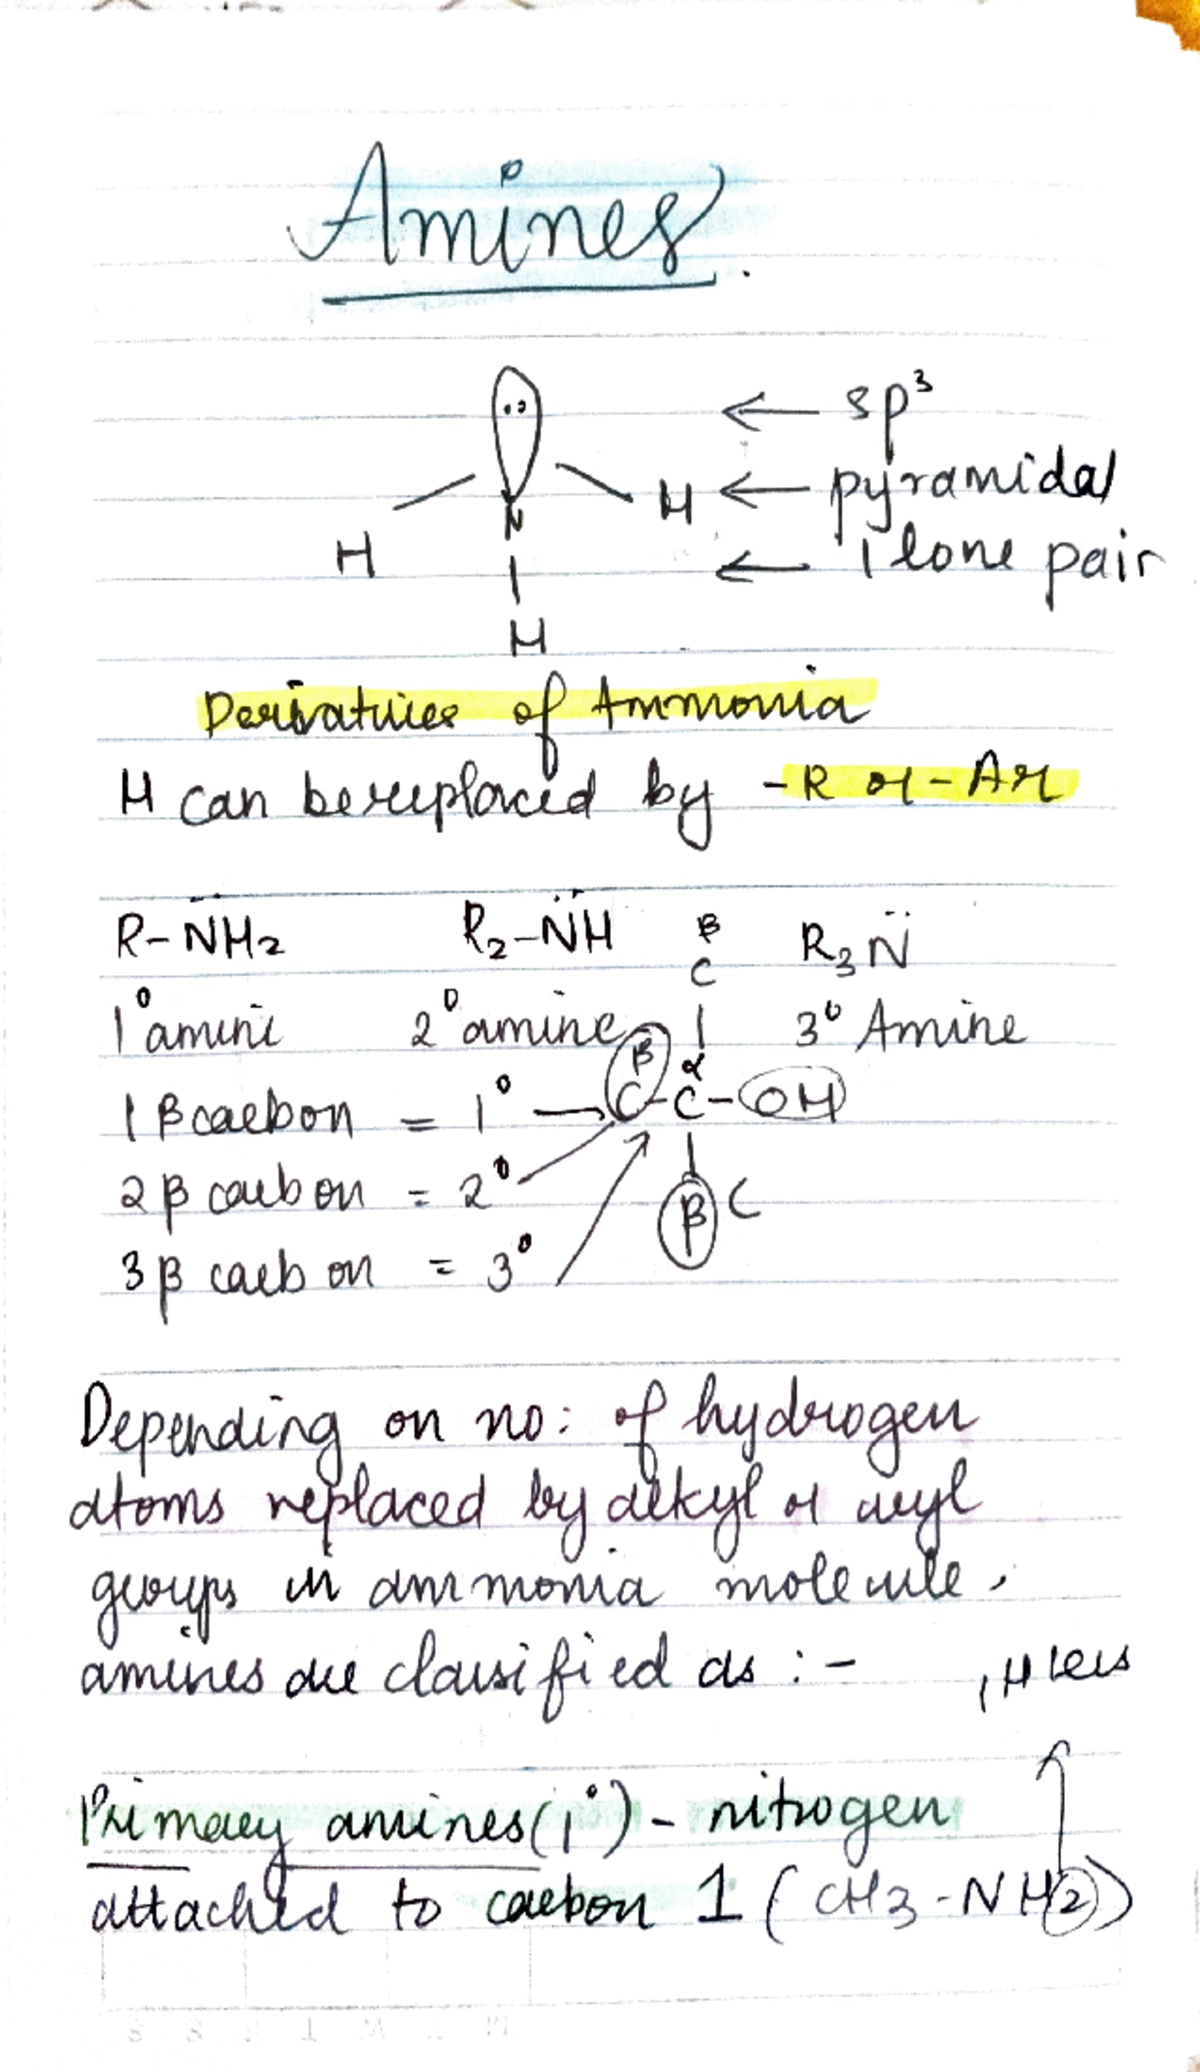 Amines.
sp³
N
H ← pyramidal
H
← 1 lone pair
H
Derivatives of Ammonia
H can be replaced by -R or -Ar
R-N̈H₂ R₂-N̈H R₃N̈
β
C
1° amine 2° amine 3° Amine
1 β carbon = 1°
β α
C-C-OH
2 β carbon = 2°
β C
3 β carbon = 3°
Depending on no: of hydrogen
atoms replaced by alkyl or aryl
groups in ammonia molecule,
amines are classified as :-
1 H less
Primary amines (1°) - nitrogen
attached to carbon 1 (CH3-NH2)